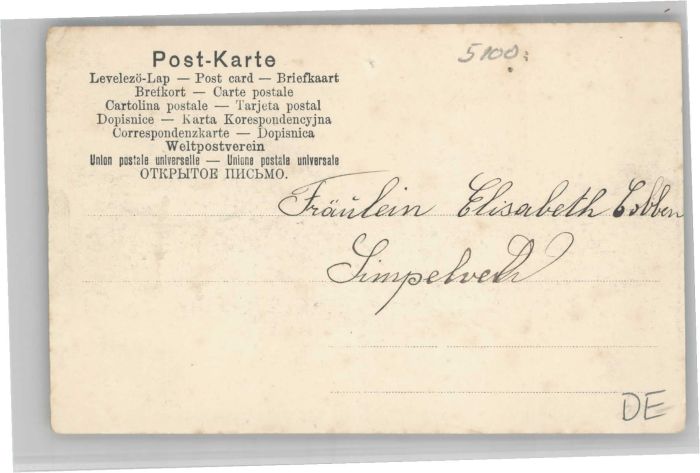 Post-Karte
5100.
Levelezö-Lap — Post card — Briefkaart
Brefkort — Carte postale
Cartolina postale — Tarjeta postal
Dopisnice — Karta Korespondencyjna
Correspondenzkarte — Dopisnica
Weltpostverein
Union postale universelle — Unione postale universale
ОТКРЫТОЕ ПИСЬМО.
Fräulein Elisabeth
Simpelveld
DE